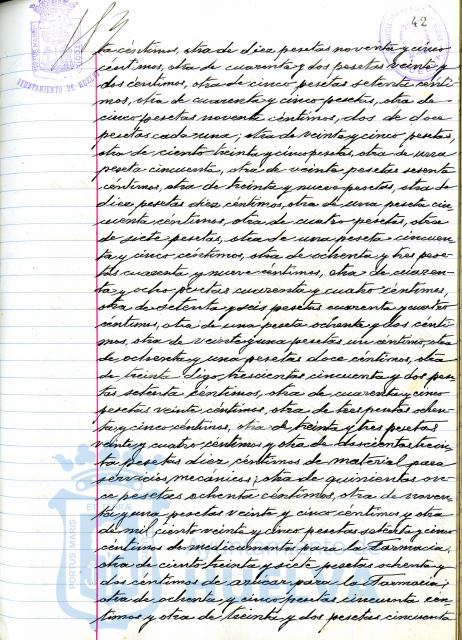 42
AYUNTAMIENTO DE HUELVA
ta céntimos, otra de diez pesetas noventa y cinco
céntimos, otra de cuarenta y dos pesetas veinte y
dos céntimos, otra de cinco pesetas setenta cénti-
mos, otra de cuarenta y cinco pesetas, otra de
cinco pesetas noventa céntimos, dos de doce
pesetas cada una; otra de veinte y cinco pesetas,
otra de ciento treinta y cinco pesetas, otra de una
peseta cincuenta, otra de veinte pesetas sesenta
céntimos, otra de treinta y nueve pesetas, otra de
diez pesetas diez céntimos, otra de una peseta cin-
cuenta céntimos, otra de cuatro pesetas, otra
de siete pesetas, otra de una peseta cincuen-
ta y cinco céntimos, otra de ochenta y tres pese-
tas cuarenta y nueve céntimos, otra de cuaren-
ta y ocho pesetas cuarenta y cuatro céntimos,
otra de setenta y seis pesetas cuarenta y cuatro
céntimos, otra de una peseta ochenta y dos cénti-
mos, otra de veinte y una pesetas un céntimo, otra
de ochenta y una pesetas doce céntimos, otra
de treinta digo, trescientas cincuenta y dos pese-
tas setenta céntimos, otra de cuarenta y cinco
pesetas veinte céntimos, otra de tres pesetas ochen-
ta y cinco céntimos, otra de treinta y tres pesetas
veinte y cuatro céntimos y otra de doscienta trein-
ta pesetas diez céntimos de material para
servicios mecanicos; otra de quinientas on-
ce pesetas ochenta céntimos, otra de noven-
ta y una pesetas veinte y cinco céntimos y otra
de mil ciento veinte y cinco pesetas setenta y cinco
céntimos de medicamentos para la Farmacia;
otra de ciento treinta y siete pesetas ochenta y
dos céntimos de azucar para la Farmacia;
otra de ochenta y cinco pesetas cincuenta cén-
timos y otra de treinta y dos pesetas cincuenta
PORTUS MARIS
Ayuntamiento de
HUELVA